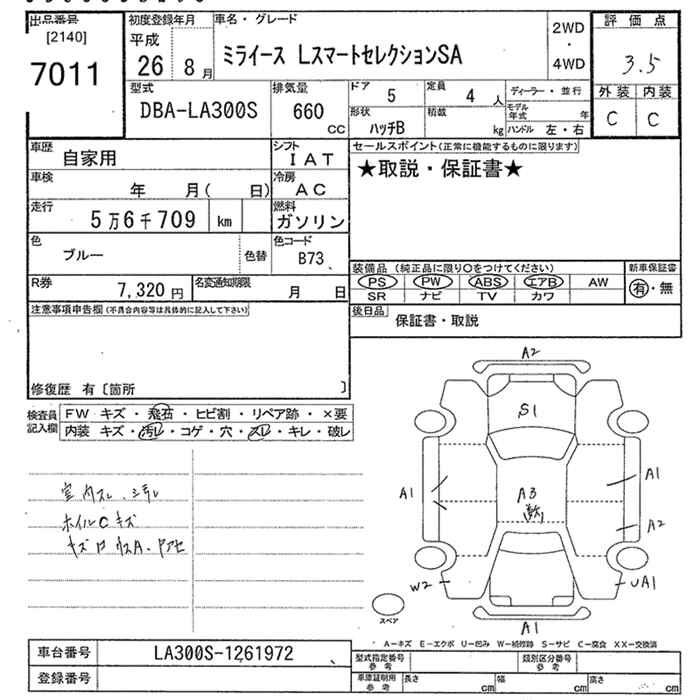 出品番号 初度登録年月 車名・グレード 2WD・4WD 評価点
[2140] 平成
7011 26 8月 ミライース LスマートセレクションSA 3.5
型式 排気量 ドア 5 定員 4人 ディーラー・並行 外装 内装
DBA-LA300S 660 cc 形状 ハッチB 積載 kg モデル年式 年 C C
ハンドル 左・右
車歴 自家用 シフト IAT セールスポイント(正常に機能するものに限ります)
車検 年 月( 日) 冷房 AC ★取説・保証書★
走行 5万6千709 km 燃料 ガソリン
色 ブルー 色替 色コード B73
装備品 (純正品に限り○をつけてください) 新車保証書
R券 7,320円 名変通知期限 月 日 PS PW ABS エアB AW 有・無
SR ナビ TV カワ
注意事項申告欄(不具合内容等は具体的に記入して下さい) 後日品 保証書・取説
修復歴 有〔箇所 〕
検査員記入欄 FW キズ・飛石・ヒビ割・リペア跡・×要
内装 キズ・汚レ・コゲ・穴・スレ・キレ・破レ
A2
S1
A1 A3 A1
A2
W2 UA1
A1
スペア
ホイルCキズ
A-キズ E-エクボ U-凹み W-補修跡 S-サビ C-腐食 XX-交換済
車台番号 LA300S-1261972 型式指定番号 参考 類別区分番号 参考
登録番号 車庫証明用 参考 長さ cm 幅 cm 高さ cm